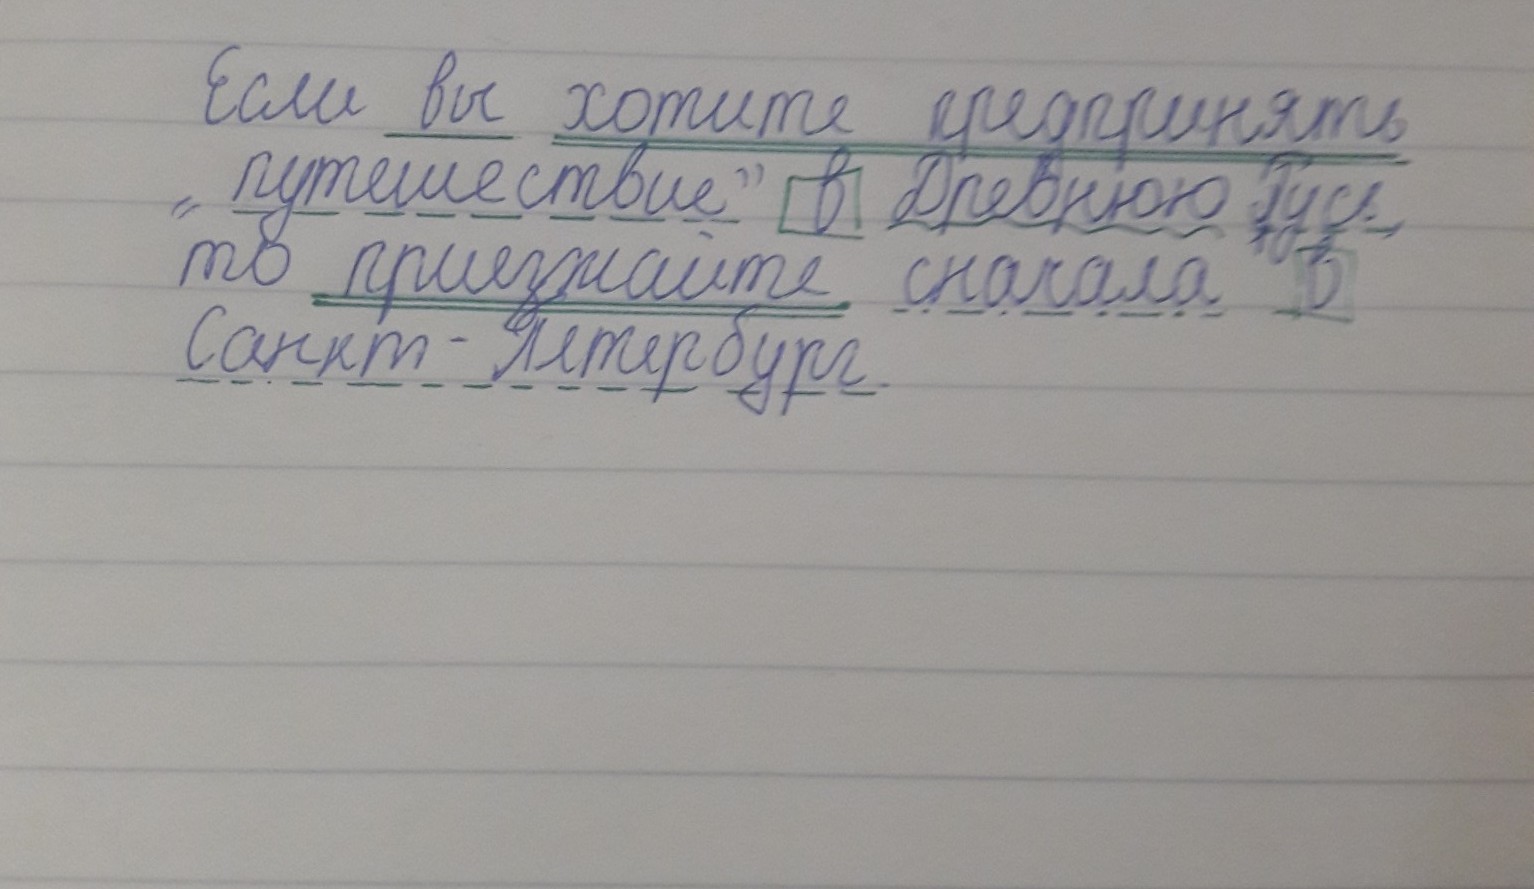 Если вы хотите предпринять
„путешествие” в Древнюю Русь,
то приезжайте сначала в
Санкт-Петербург.